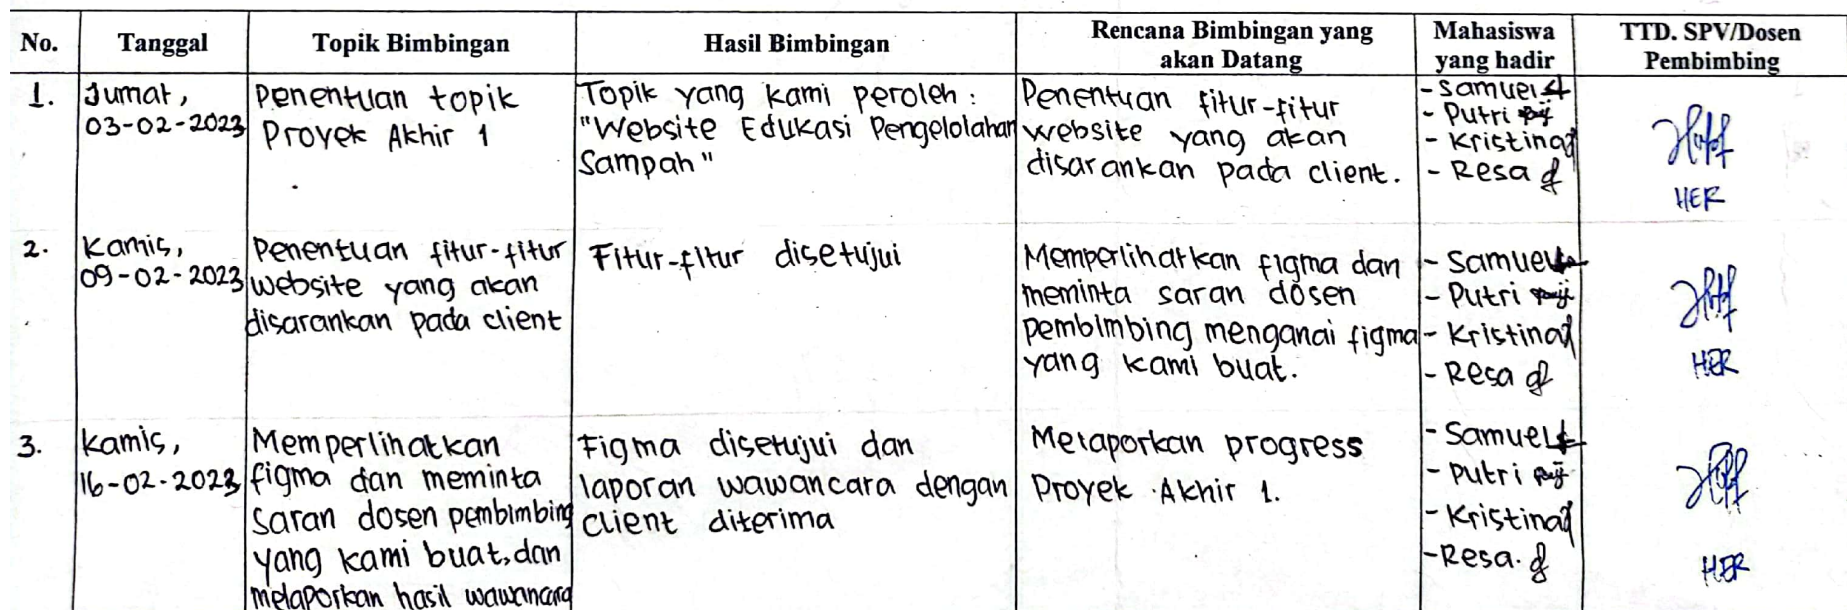 No. Tanggal Topik Bimbingan Hasil Bimbingan Rencana Bimbingan yang akan Datang Mahasiswa yang hadir TTD. SPV/Dosen Pembimbing
1.
Jumat,
03-02-2023
Penentuan topik
Proyek Akhir 1
Topik yang kami peroleh :
"Website Edukasi Pengelolahan
Sampah"
Penentuan fitur-fitur
website yang akan
disarankan pada client.
- Samuel
- Putri
- Kristina
- Resa
HER
2.
Kamis,
09-02-2023
Penentuan fitur-fitur
website yang akan
disarankan pada client
Fitur-fitur disetujui
Memperlihatkan figma dan
meminta saran dosen
pembimbing menganai figma
yang kami buat.
- Samuel
- Putri
- Kristina
- Resa
HER
3.
Kamis,
16-02-2023
Memperlihatkan
figma dan meminta
saran dosen pembimbing
yang kami buat, dan
melaporkan hasil wawancara
Figma disetujui dan
laporan wawancara dengan
client diterima
Melaporkan progress
Proyek Akhir 1.
- Samuel
- Putri
- Kristina
- Resa.
HER